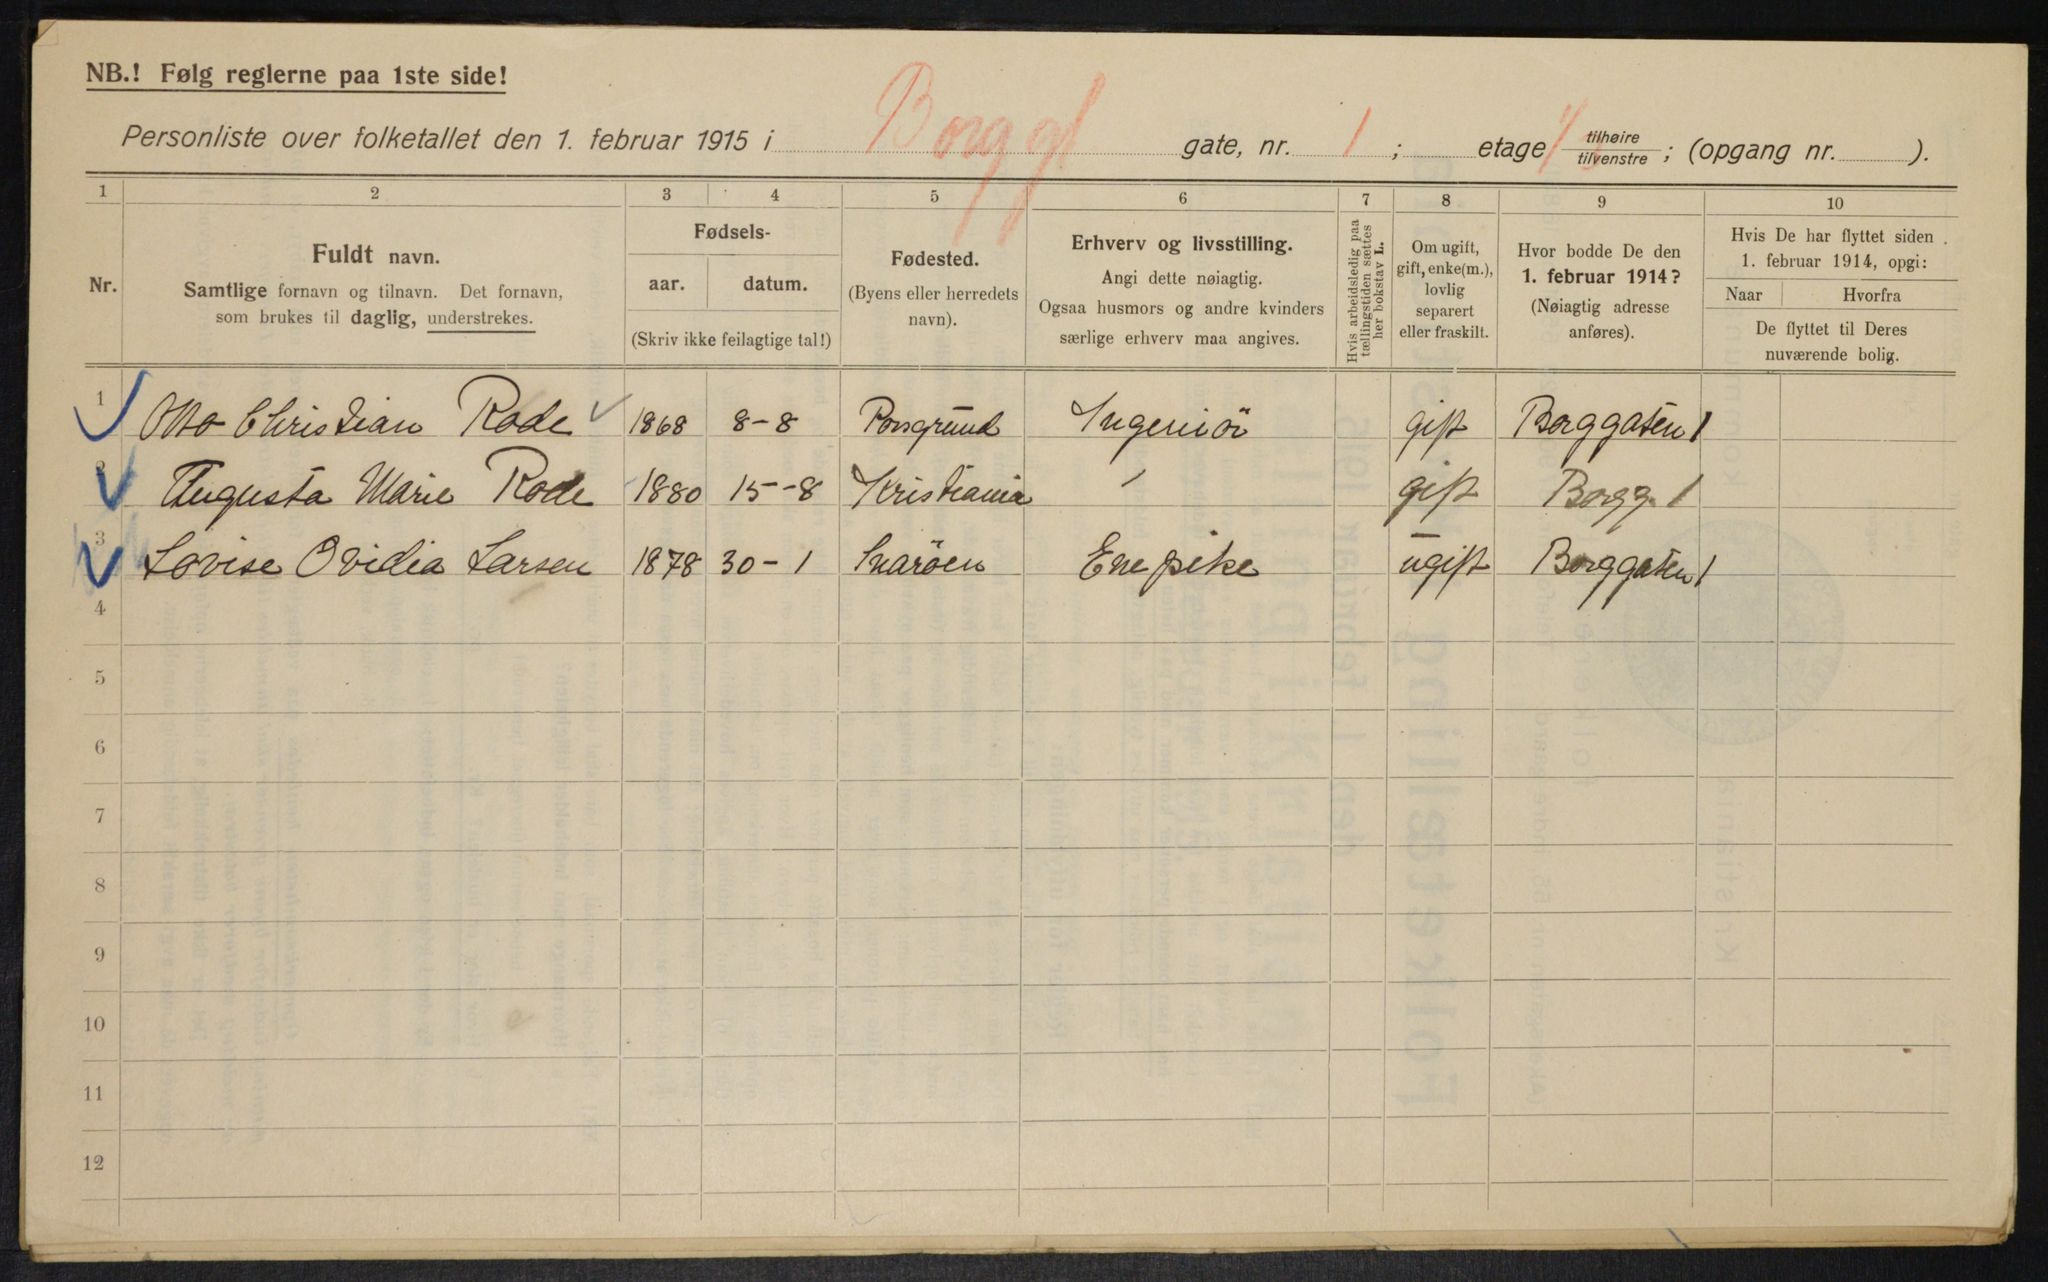 NB.! Følg reglerne paa 1ste side!
Personliste over folketallet den 1. februar 1915 i Borggt gate, nr. 1 ; etage tilhøire tilvenstre ; (opgang nr. ).
1 2 3 4 5 6 7 8 9 10
Nr.
Fuldt navn.
Samtlige fornavn og tilnavn. Det fornavn,
som brukes til daglig, understrekes.
Fødsels-
aar. datum.
(Skriv ikke feilagtige tal!)
Fødested.
(Byens eller herredets
navn).
Erhverv og livsstilling.
Angi dette nøiagtig.
Ogsaa husmors og andre kvinders
særlige erhverv maa angives.
Hvis arbeidsledig paa
tællingstiden sættes
her bokstav L.
Om ugift,
gift, enke(m.),
lovlig
separert
eller fraskilt.
Hvor bodde De den
1. februar 1914?
(Nøiagtig adresse
anføres).
Hvis De har flyttet siden
1. februar 1914, opgi:
Naar Hvorfra
De flyttet til Deres
nuværende bolig.
1 Otto Christian Rode 1868 8-8 Porsgrund Ingeniör gift Borggaten 1
2 Augusta Marie Rode 1880 15-8 Kristiania gift Borgg. 1
3 Lovise Ovidia Larsen 1878 30-1 Snaröen Enepike ugift Borggaten 1
4
5
6
7
8
9
10
11
12